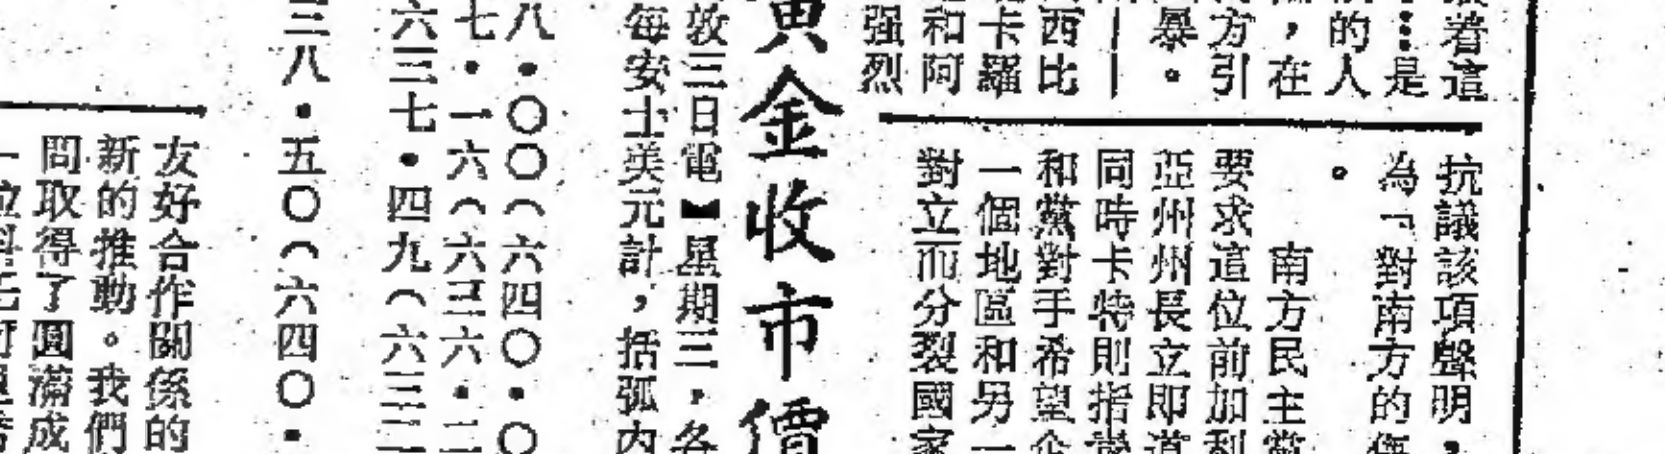 着這
…是
的人
，在
方引
暴。
——
西比
卡羅
和阿
强烈
抗議該項聲明，
為「對南方的侮
。
南方民主黨
要求這位前加利
亞州州長立即道
同時卡特則指
和黨對手希望企
一個地區和另一
對立而分裂國家
黃金收市價
敦三日電】星期三，各
每安士美元計，括弧内
八．〇〇（六四〇．〇
七．一六（六三六．二
六三七．四九（六三二
三八．五〇（六四〇．
友好合作關係的
新的推動。我們
問取得了圓滿成
一位